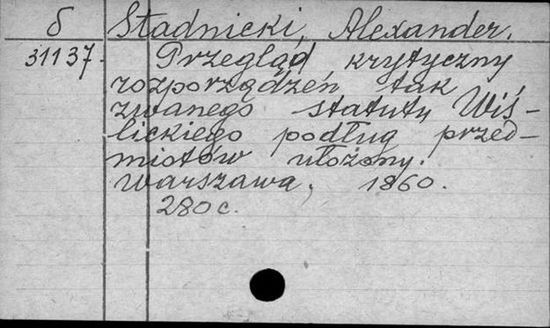 δ Stadnicki, Alexander.
31137. Przegląd krytyczny
rozporządzeń tak
zwanego statutu Wiś-
lickiego podług przed-
miotów ułożony.
Warszawa, 1860.
280c.